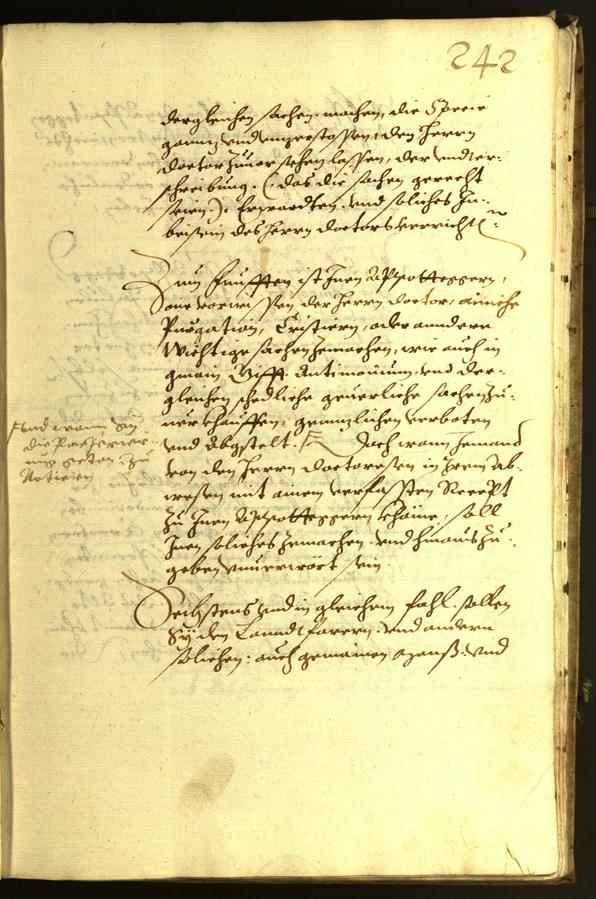 242
dergleichen sachen machen, die Specie
ganntz und unzerstossen, den Herrn
doctor zuvor sehen lassen, der under-
schreibung (das die sachen gerecht
seien) erwardten und soliches in
beisein des herrn doctors verricht
Zum funfften ist Inen Appotteggern,
one vorwissen der herrn doctor, ainiche
Purgation, Cristiern, oder anndere
Wichtige sachen zemachen, wie auch in
gmain Gifft Antimonium, und der-
gleichen schedliche geverliche sachen zu
verkhauffen, gennzlichen verboten
und Abgstelt. Doch wann jemand
von den Herrn doctoren in Irem Ab-
wesen mit ainem verfassten Recept
zu Inen Appotteggern khäme, soll
Inen soliches zemachen und hinaus zu
geben unverwört sein
und wann
die
zu
Notiern
Sechstens und in gleichem fahl sollen
Sy den Lanndtfarern und andern
solichen: auch gemainen und